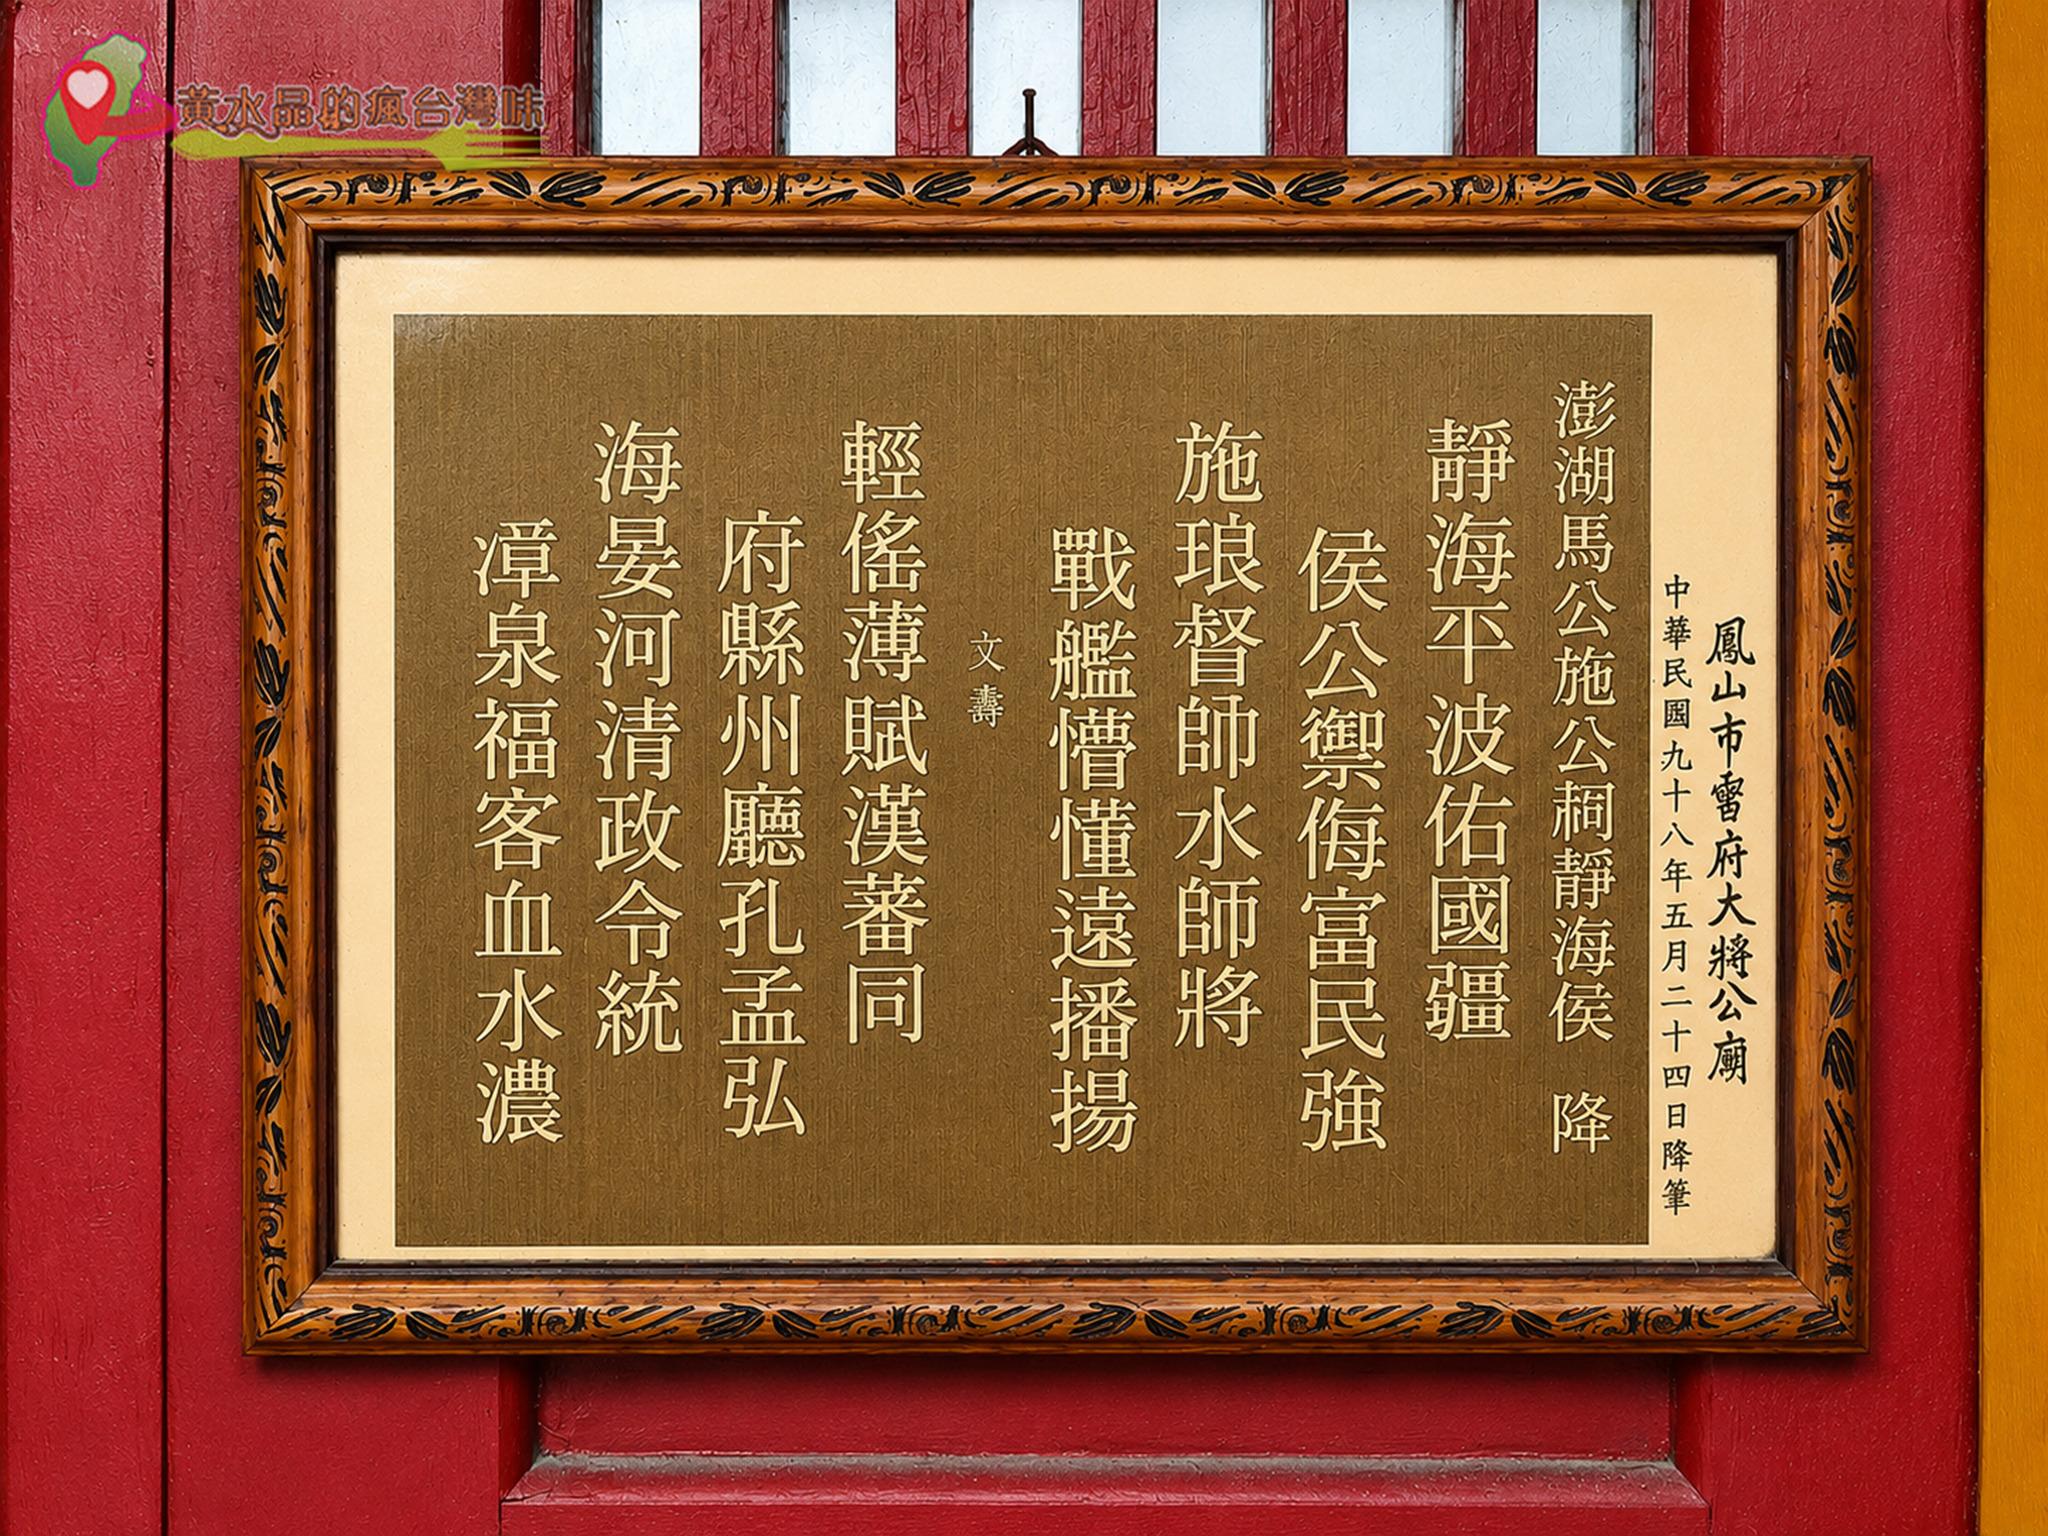 黃水晶的瘋台灣味
鳳山市雷府大將公廟
中華民國九十八年五月二十四日降筆
澎湖馬公施公祠靜海侯 降
靜海平波佑國疆
侯公禦侮富民強
施琅督師水師將
戰艦懵懂遠播揚
文壽
輕傜薄賦漢蕃同
府縣州廳孔孟弘
海晏河清政令統
漳泉福客血水濃